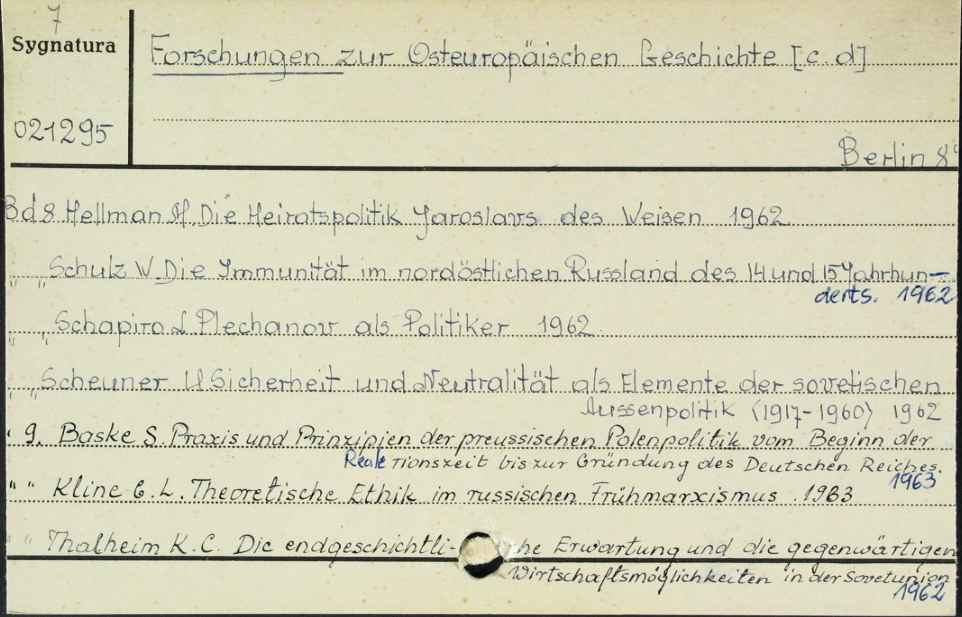 7
Sygnatura
Forschungen zur Osteuropäischen Geschichte [c.d]
021295
Berlin 8°
Bd 8 Hellman M. Die Heiratspolitik Jaroslavs des Weisen 1962
" " Schulz W. Die Immunität im nordöstlichen Russland des 14 und 15 Jahrhun-
derts. 1962
" " Schapiro L Plechanov als Politiker 1962
" " Scheuner U Sicherheit und Neutralität als Elemente der sovetischen
Aussenpolitik (1917-1960) 1962
" 9. Baske S. Praxis und Prinzipien der preussischen Polenpolitik vom Beginn der
Reaktionszeit bis zur Gründung des Deutschen Reiches.
1963
" " Kline G. L. Theoretische Ethik im russischen Frühmarxismus . 1963
" " Thalheim K. C. Die endgeschichtli- he Erwartung und die gegenwärtigen
Wirtschaftsmöglichkeiten in der Sovetunion
1962